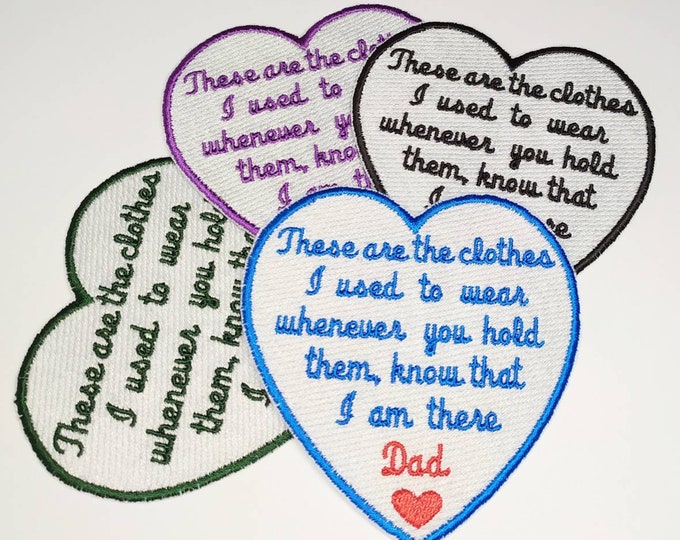 These are the clothes
I used to wear
whenever you hold
them, know
I am th
These are the clothes
I used to wear
whenever you hold
them, know that
I
These are the clothes
I used to wear
whenever you hold
them, know
I
These are the clothes
I used to wear
whenever you hold
them, know that
I am there
Dad